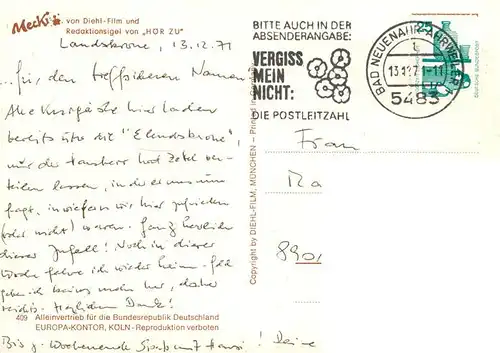 Mecki von Diehl-Film und
Redaktionsigel von „HÖR ZU"
Landskrone, 13.12.71
...für den treffsicheren Namen!
Alle Kurgäste hier lachen
bereits über die "Elendskrone",
nur der Hausherr hat Zettel ver-
teilen lassen, in der er uns um
fragt, inwiefern wir hier zufrieden
(oder nicht) waren. Ganz herzlichen
dieser Zufall! Noch in dieser
Woche fahre ich wieder heim.
geben ich keins mehr, daher
nichts. Herzlichen Dank!
409 Alleinvertrieb für die Bundesrepublik Deutschland
EUROPA-KONTOR, KÖLN - Reproduktion verboten
Bis z. Wochenende Deine
Copyright by DIEHL-FILM, MÜNCHEN – Printed in
BITTE AUCH IN DER
ABSENDERANGABE:
VERGISS
MEIN
NICHT:
DIE POSTLEITZAHL
BAD NEUENAHR-AHRWEILER 1
13.12.71-11
5483
25
DEUTSCHE BUNDESPOST
Frau
Ma
8901